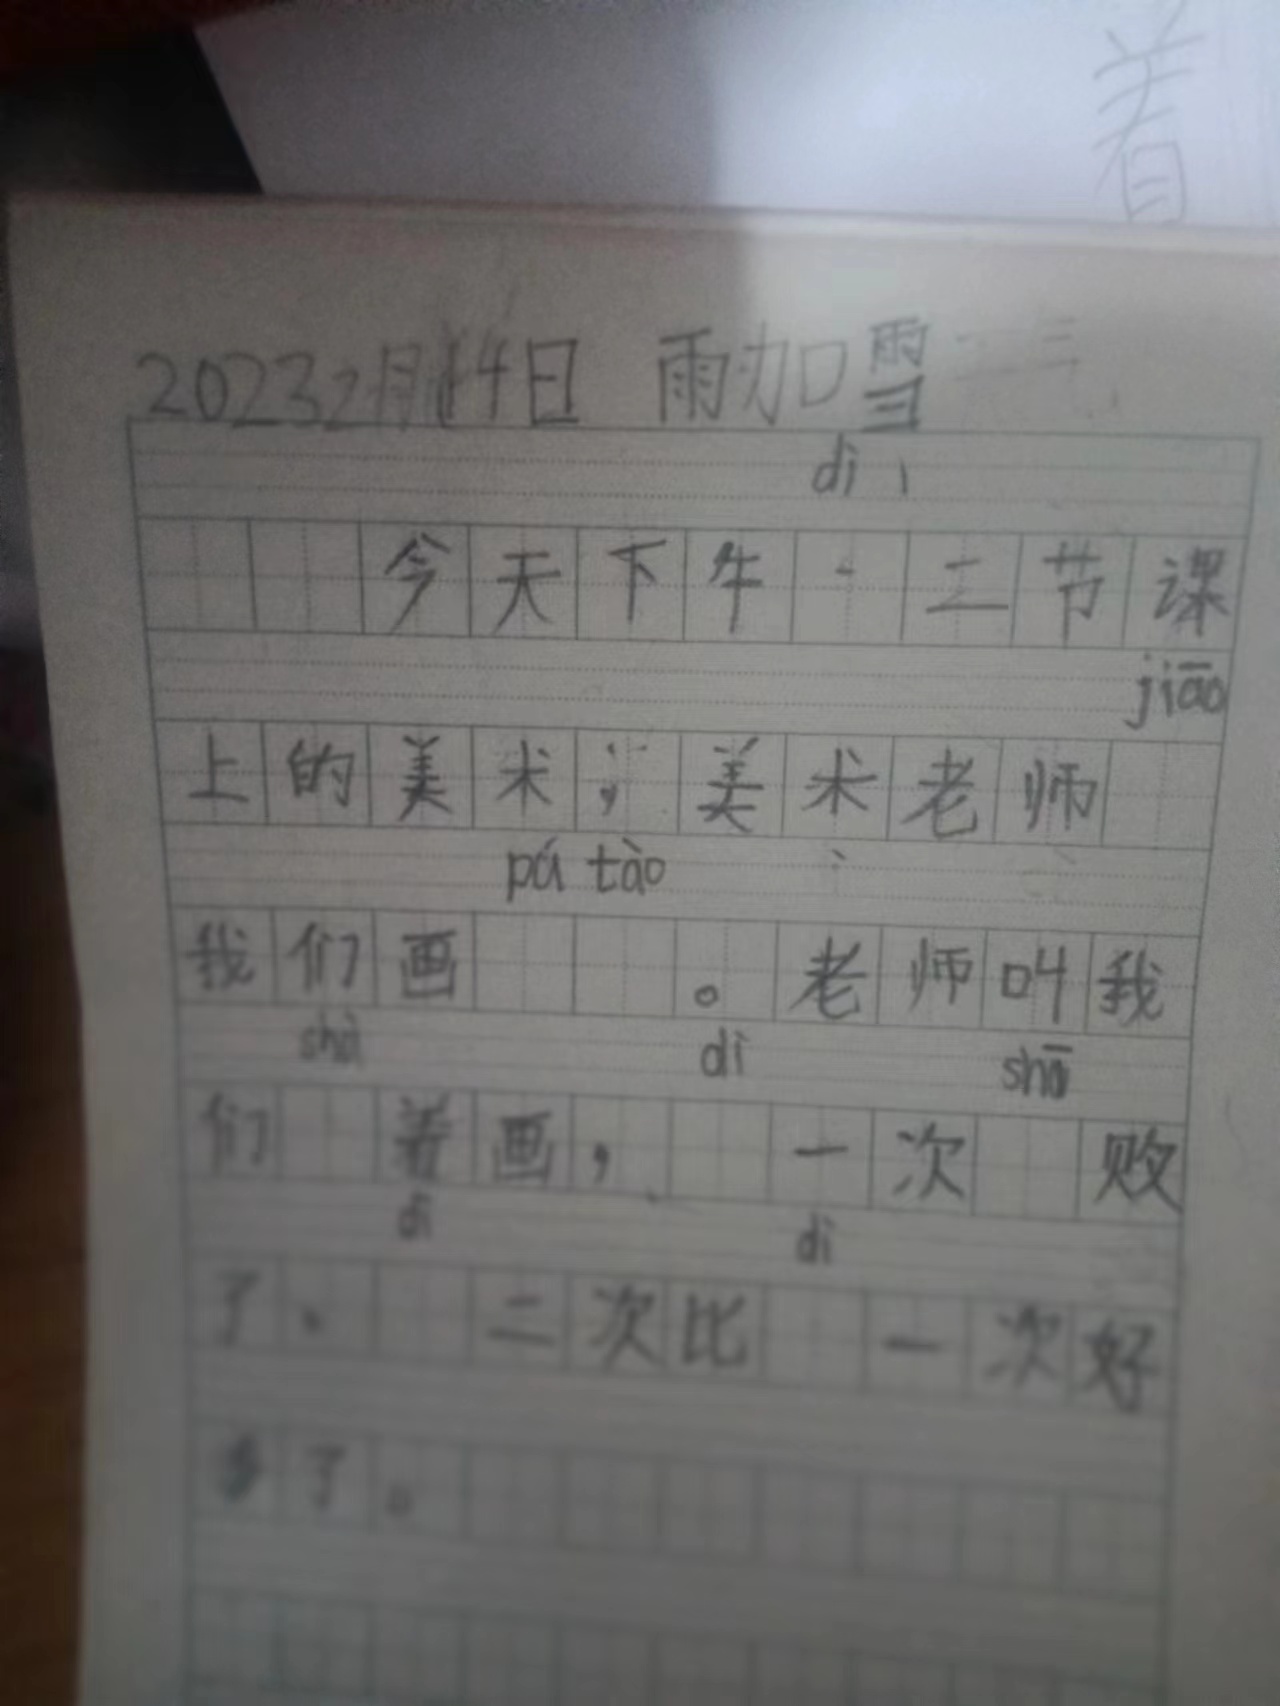 着
20232月14日 雨加雪
dì
今天下牛二节课
jiāo
上的美术，美术老师
pú tào
我们画。老师叫我
shì dì shī
们着画，一次败
dì dì
了、二次比一次好
多了。